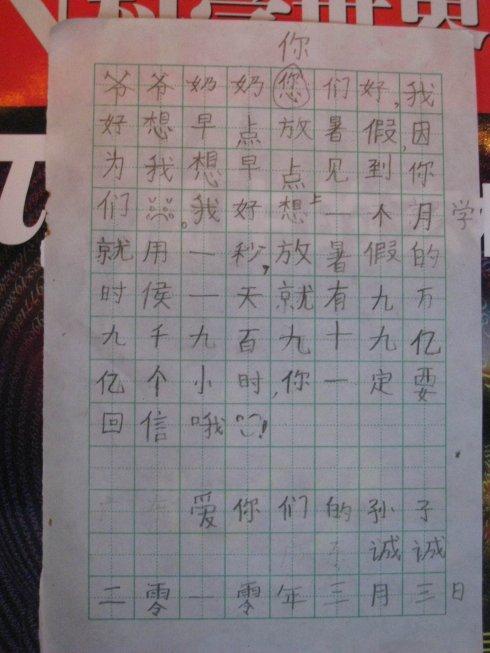 科学世界
你
爷爷奶奶您们好,我
好想早点放暑假,因
为我想早点见到你
们。我好想上一个月学
就用一秒,放暑假的
时候一天就有九万
九千九百九十九亿
亿个小时,你一定要
回信哦!
爱你们的孙子
诚诚
二零一零年三月三日